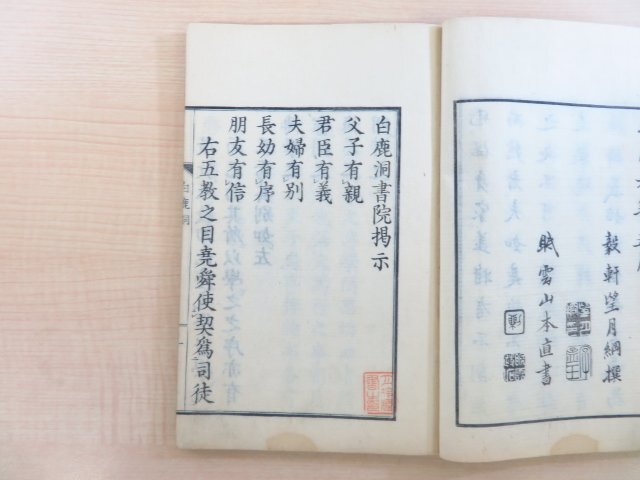 穀軒望月綱撰
眠雲山本直書
白鹿洞書院揭示
父子有親
君臣有義
夫婦有別
長幼有序
朋友有信
右五教之目堯舜使契爲司徒
白鹿洞